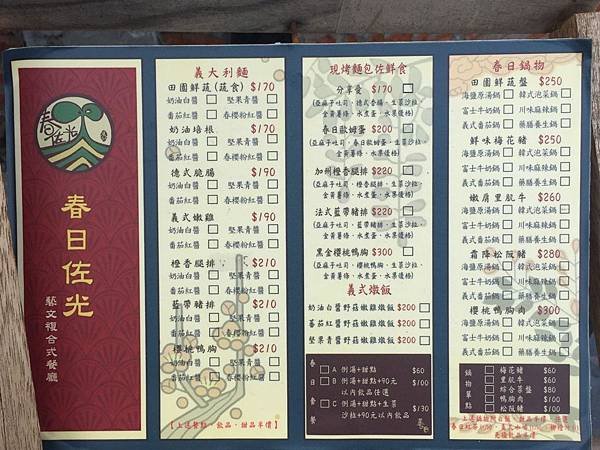 春佐光
春日佐光
藝文複合式餐廳
義大利麵
田園鮮蔬(蔬食) $170
奶油白醬 堅果青醬
番茄紅醬 春櫻粉紅醬
奶油培根 $170
奶油白醬 堅果青醬
番茄紅醬 春櫻粉紅醬
德式脆腸 $190
奶油白醬 堅果青醬
番茄紅醬 春櫻粉紅醬
義式嫩雞 $190
奶油白醬 堅果青醬
番茄紅醬 春櫻粉紅醬
橙香腿排 $210
奶油白醬 堅果青醬
番茄紅醬 春櫻粉紅醬
藍帶豬排 $210
奶油白醬 堅果青醬
番茄紅醬 春櫻粉紅醬
櫻桃鴨胸 $210
奶油白醬 堅果青醬
番茄紅醬 春櫻粉紅醬
【上述餐點,飲品、甜品半價】
現烤麵包佐鮮食
分享愛 $170
(亞麻子吐司、德式香腸、生菜沙拉、
金黃薯條、水煮蛋、水果優格)
春日歐姆蛋 $200
(亞麻子吐司、春日歐姆蛋、生菜沙拉、
金黃薯條、水果優格)
加州橙香腿排 $220
(亞麻子吐司、橙香腿排、生菜沙拉、
金黃薯條、水煮蛋、水果優格)
法式藍帶豬排 $220
(亞麻子吐司、藍帶豬排、生菜沙拉、
金黃薯條、水煮蛋、水果優格)
黑金櫻桃鴨胸 $300
(亞麻子吐司、櫻桃鴨胸、生菜沙拉、
金黃薯條、水煮蛋、水果優格)
義式燉飯
奶油白醬野菇嫩雞燉飯 $200
番茄紅醬野菇嫩雞燉飯 $200
堅果青醬野菇嫩雞燉飯 $200
春日套餐
A 例湯+甜點 $60
B 例湯+甜點+90元 $100
以內飲品任選
C 例湯+甜點+生菜 $130
沙拉+90元以內飲品
春日鍋物
田園鮮蔬盤 $250
海鹽原湯鍋 韓式泡菜鍋
富士牛奶鍋 川味麻辣鍋
義式番茄鍋 藥膳養生鍋
鮮味梅花豬 $250
海鹽原湯鍋 韓式泡菜鍋
富士牛奶鍋 川味麻辣鍋
義式番茄鍋 藥膳養生鍋
嫩肩里肌牛 $260
海鹽原湯鍋 韓式泡菜鍋
富士牛奶鍋 川味麻辣鍋
義式番茄鍋 藥膳養生鍋
霜降松阪豬 $280
海鹽原湯鍋 韓式泡菜鍋
富士牛奶鍋 川味麻辣鍋
義式番茄鍋 藥膳養生鍋
櫻桃鴨胸肉 $300
海鹽原湯鍋 韓式泡菜鍋
富士牛奶鍋 川味麻辣鍋
義式番茄鍋 藥膳養生鍋
鍋物單點
梅花豬 $60
里肌牛 $60
綜合菜盤 $80
鴨胸肉 $100
松阪豬 $100